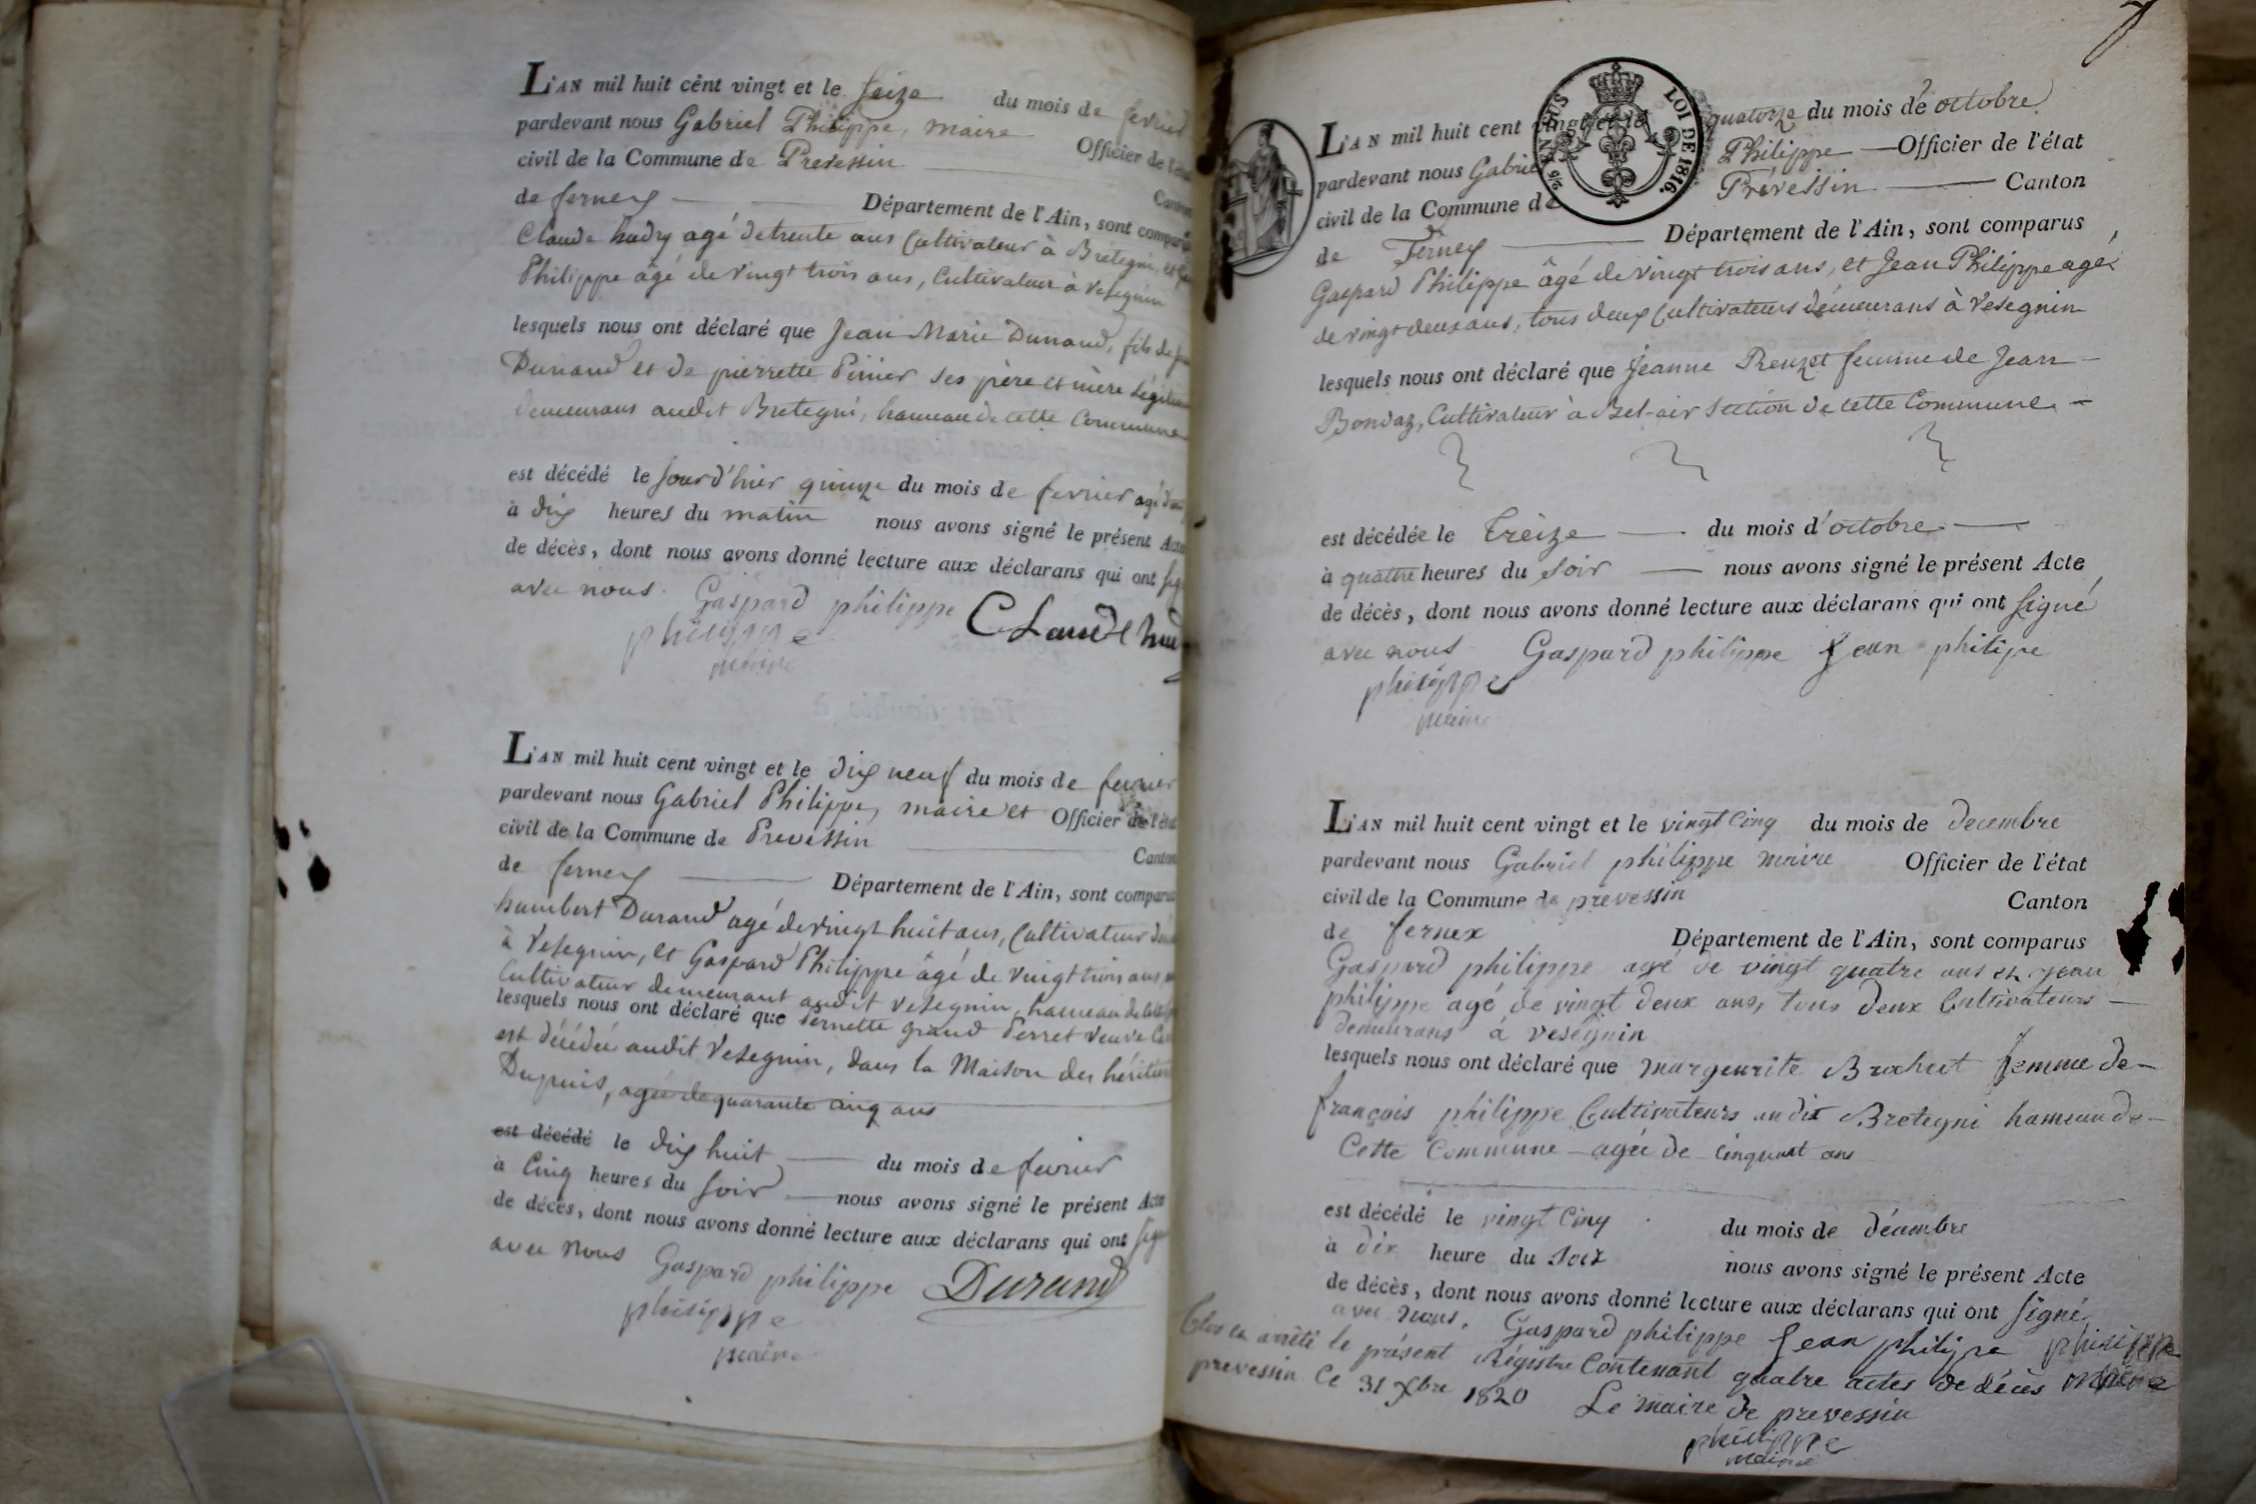 L'AN mil huit cent vingt et le seize du mois de fevrier
pardevant nous Gabriel Philippe, maire Officier de l'éta
civil de la Commune de Prevessin Canton
de ferney Département de l'Ain, sont comparus
Claude hudry agé de trente ans Cultivateur à Brétegni, et
Philippe âgé de vingt trois ans, Cultivateur à Vesegnin
lesquels nous ont déclaré que Jean Marie Dunand, fils de
Dunand et de pierrette Pinier ses père et mère
demeurans audit Bretegni, hameau de cette Commune
est décédé le jourd'hier quinze du mois de fevrier agé
à dix heures du matin nous avons signé le présent Acte
de décès, dont nous avons donné lecture aux déclarans qui ont sig
avec nous. Gaspard philippe Claude hud
philippe
maire
L'AN mil huit cent vingt et le dix neuf du mois de fevrier
pardevant nous Gabriel Philippe, maire et Officier de l'état
civil de la Commune de Prevessin Canton
de ferney Département de l'Ain, sont comparus
humbert Durand agé de vingt huit ans, Cultivateur
à Vesegnin, et Gaspard Philippe âgé de vingt trois ans
Cultivateur demeurant audit Vesegnin, hameau de cette
lesquels nous ont déclaré que Pernette grand Perret veuve
est décédée audit Vesegnin, dans la Maison des héritiers
Dupuis, agée de quarante cinq ans
est décédé le dix huit du mois de fevrier
à Cinq heures du soir nous avons signé le présent Acte
de décès, dont nous avons donné lecture aux déclarans qui ont signé
avec nous Gaspard philippe Durand
philippe
maire
LOI DE 1816.
L'AN mil huit cent vingt et le quatorze du mois d'octobre
pardevant nous Gabriel Philippe Officier de l'état
civil de la Commune de Prévessin Canton
de Ferney Département de l'Ain, sont comparus
Gaspard Philippe âgé de vingt trois ans, et Jean Philippe agé
de vingt deux ans, tous deux Cultivateurs demeurans à Vesegnin
lesquels nous ont déclaré que Jeanne Renzet femme de Jean
Bondaz, Cultivateur à Bel-air section de cette Commune
est décédée le treize du mois d'octobre
à quatre heures du soir nous avons signé le présent Acte
de décès, dont nous avons donné lecture aux déclarans qui ont signé
avec nous Gaspard philippe Jean philipe
philippe
maire
L'AN mil huit cent vingt et le vingt cinq du mois de decembre
pardevant nous Gabriel philippe maire Officier de l'état
civil de la Commune de prevessin Canton
de fernex Département de l'Ain, sont comparus
Gaspard philippe agé de vingt quatre ans et jean
philippe agé de vingt deux ans, tous deux Cultivateurs
demeurans à vesegnin
lesquels nous ont déclaré que margeurite Brochut femme de
françois philippe Cultivateurs audit Bretegni hameau de
Cette Commune agée de Cinquant ans
est décédé le vingt Cinq du mois de décembre
à dix heure du soir nous avons signé le présent Acte
de décès, dont nous avons donné lecture aux déclarans qui ont signé
avec nous. Gaspard philippe Jean philipe philippe
Clos et arrêté le présent Régistre Contenant quatre actes de décès maire
prevessin le 31 Xbre 1820 Le maire de prevessin
philippe
maire